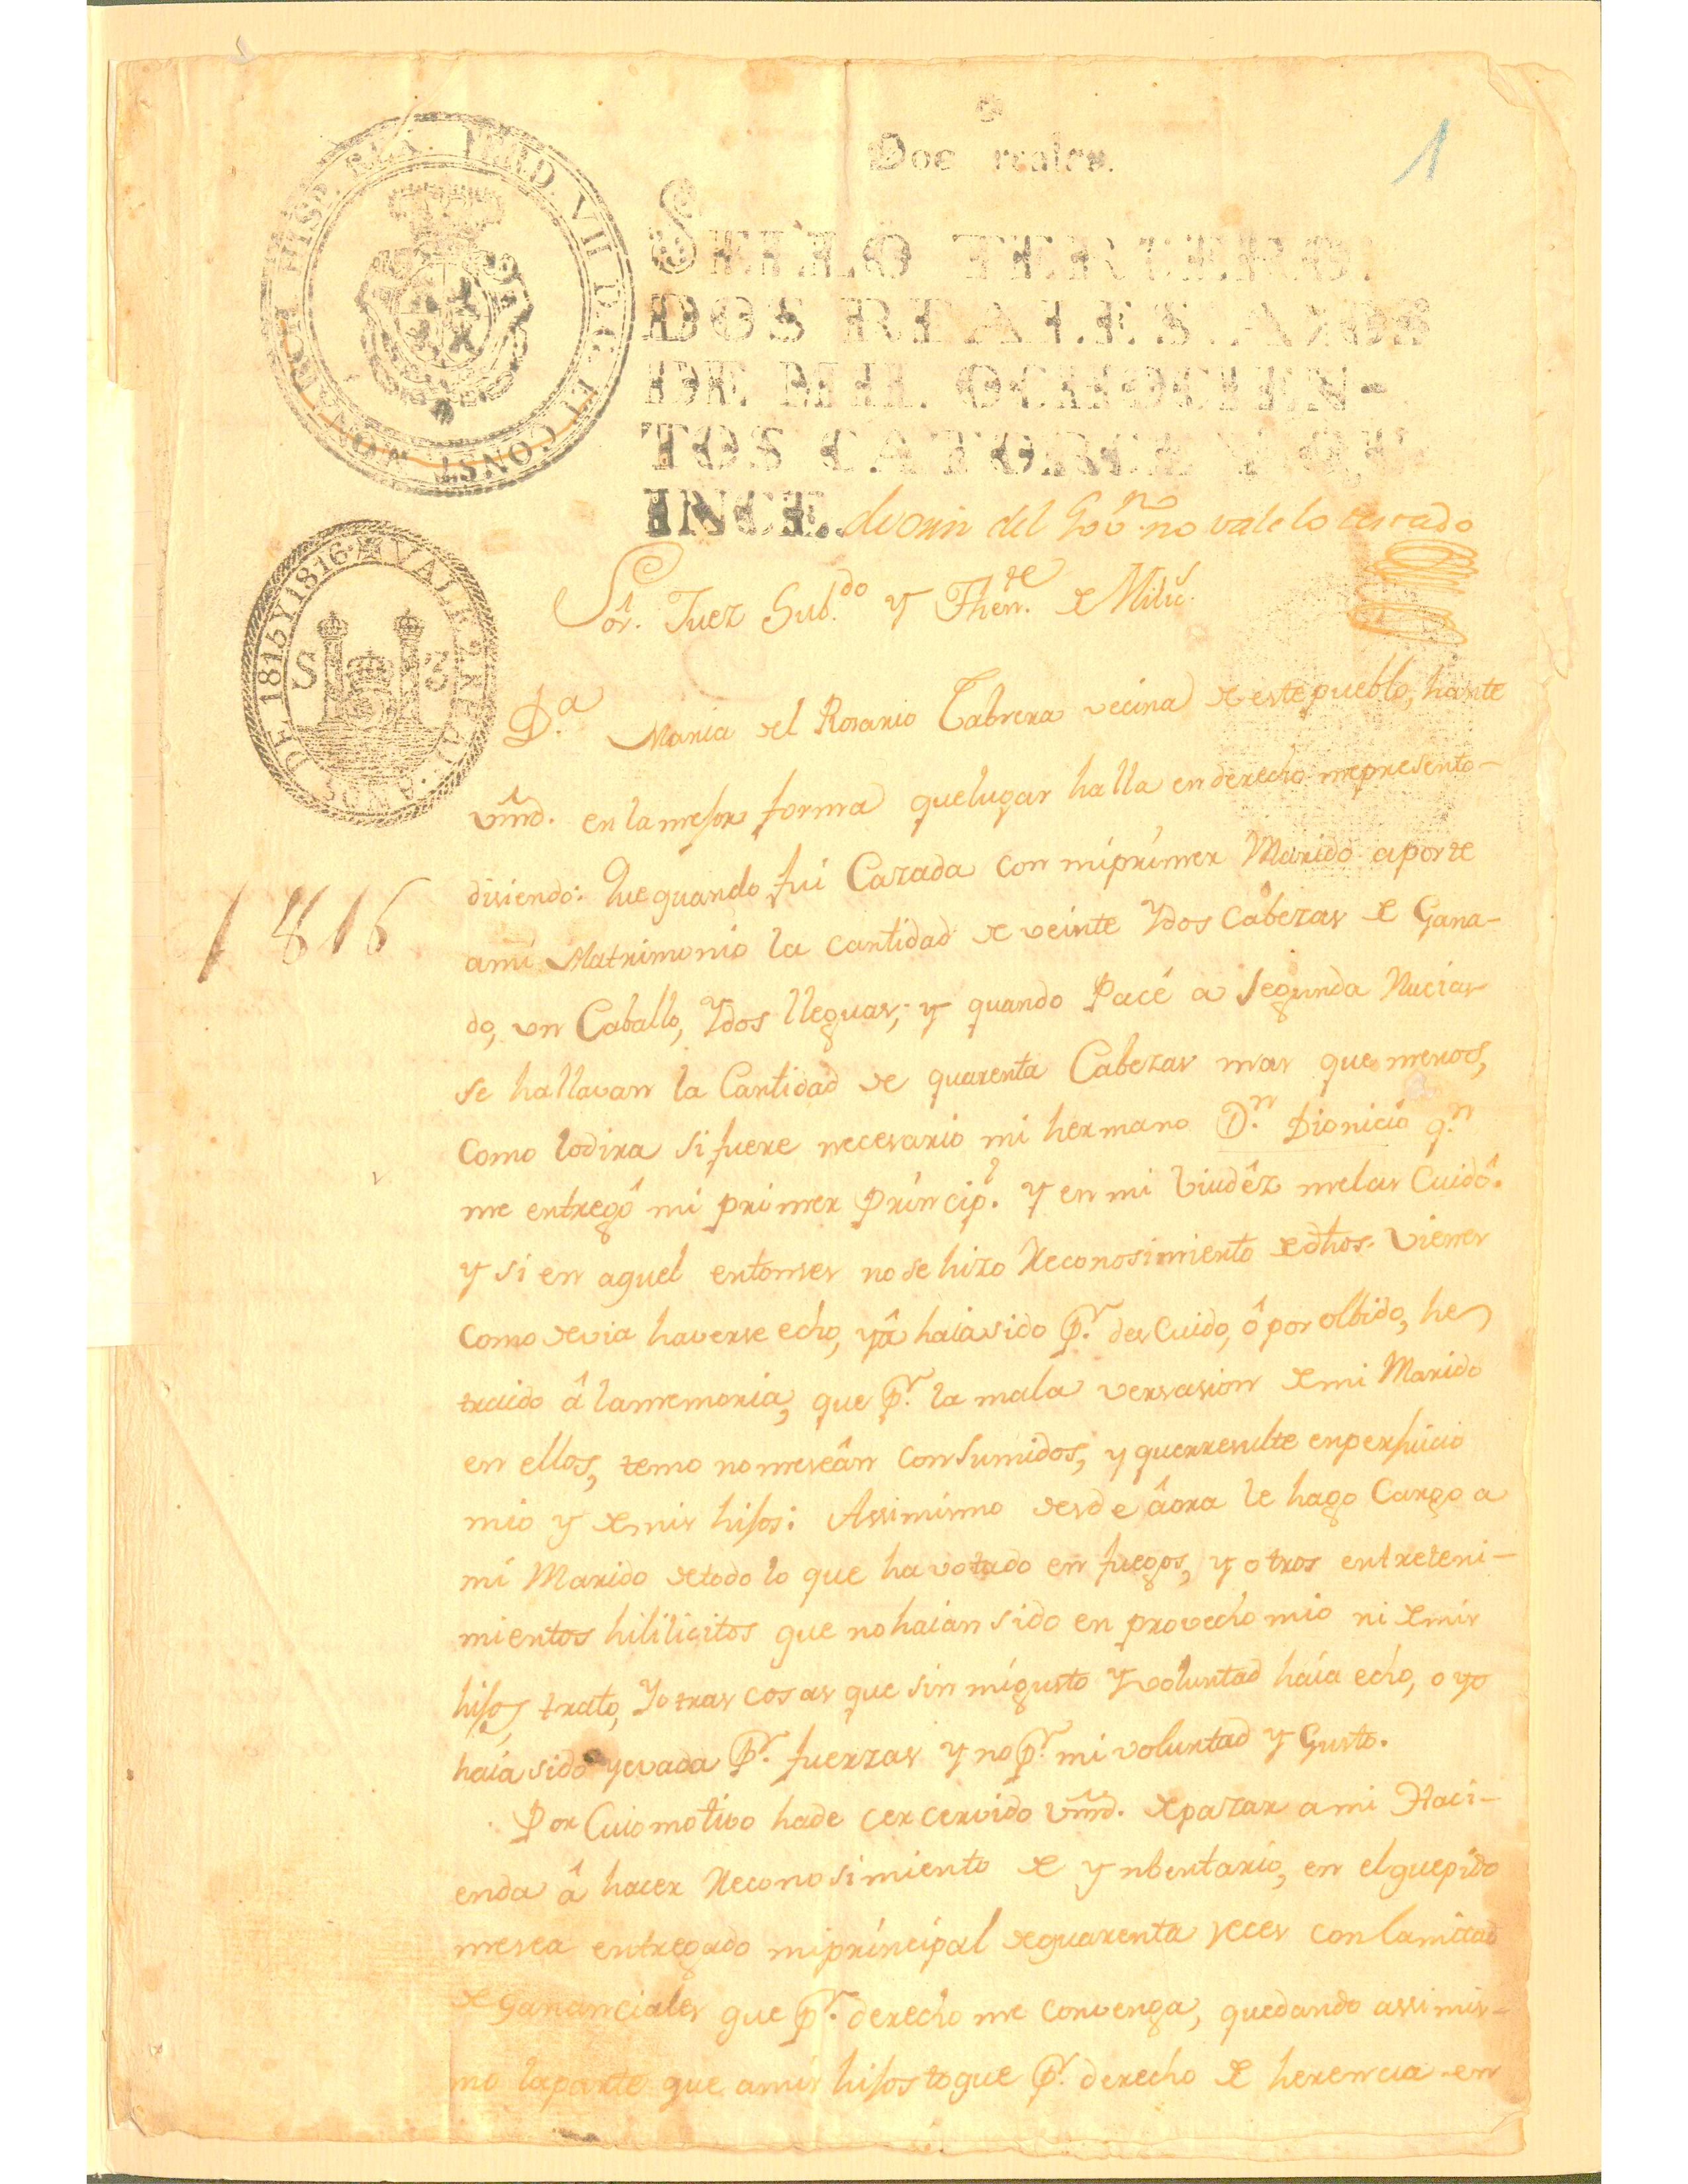 Dos reales.
1
SELLO TERCERO:
DOS REALES: AÑOS
DE MIL OCHOCIEN-
TOS CATORCE Y QU
INCE.. de orn del Govno no vale lo testado
FERD. VII D. G. ET CONST. MONARCA HISP. REX.
VALE PARA EL
AÑOS DE 1815 Y 1816.
S 3
Sôr. Juez Sub.do y Then.te de Milic.s
D.a Maria del Rosario Cabrera vecina de este pueblo, hante
vmd. en la mejor forma que lugar halla en derecho me presento-
disiendo: Que quando fui Cazada con mi primer Marido aporte
a mi Matrimonio la cantidad de veinte Ydos Cabezas de Gana-
do, un Caballo, Ydos lleguas; y quando Pacé a segunda Nucias
se hallavan la Cantidad de quarenta Cabezas mas que menos,
Como lo dira si fuere necesario mi hermano D.n Dionicio q.n
me entregô mi primer Princip.l Y en mi Viudêz me las Cuidô.
y si en aquel entonses no se hizo Reconosimiento de dhos. Vienes
Como devia haverse echo, yâ haia sido p.r des Cuido, ô por olbido, he
traido â la memoria, que p.r la mala versasion de mi Marido
en ellos, temo no me seân Consumidos, y que rresulte en perjuicio
mio y de mis hijos: Assimismo desde âora le hago Cargo a
mi Marido de todo lo que ha votado en Juegos, y otros entreteni-
mientos hililicitos que no haian sido en provecho mio ni de mis
hijos, trato, Yotras cosas que sin mi gusto Y voluntad haia echo, o yo
haia sido yevada P.r fuerzas y no p.r mi voluntad y Gusto.
Por Cuio motivo ha de cer cervido Vmd. de pazar a mi Haci-
enda â hacer Reconosimiento de Ynbentario, en el que pido
me sea entregado mi principal de quarenta reces con la mitad
de Gananciales que p.r derecho me convenga, quedando assimis-
mo la parte que a mis hijos toque p.r derecho de herencia en
1816